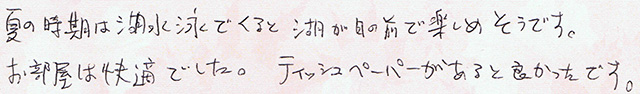 夏の時期は湖水泳でくると 湖が目の前で楽しめそうです。
お部屋は快適でした。 ティッシュペーパーがあると良かったです。